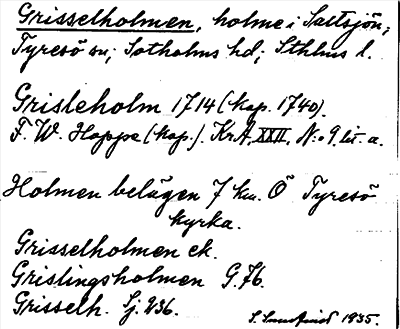 Grisselholmen, holme i Saltsjön,
Tyresö sn; Sotholms hd; Sthlms l.
Grisleholm 1714 (kop. 1740).
F. W. Hoppe (kop.). KrA. XXII. N:o 9 lit. a.
Holmen belägen 7 km. Ö Tyresö
kyrka.
Grisselholmen ek.
Grislingsholmen G. 76.
Grisselh. Sj. 236.
1935.